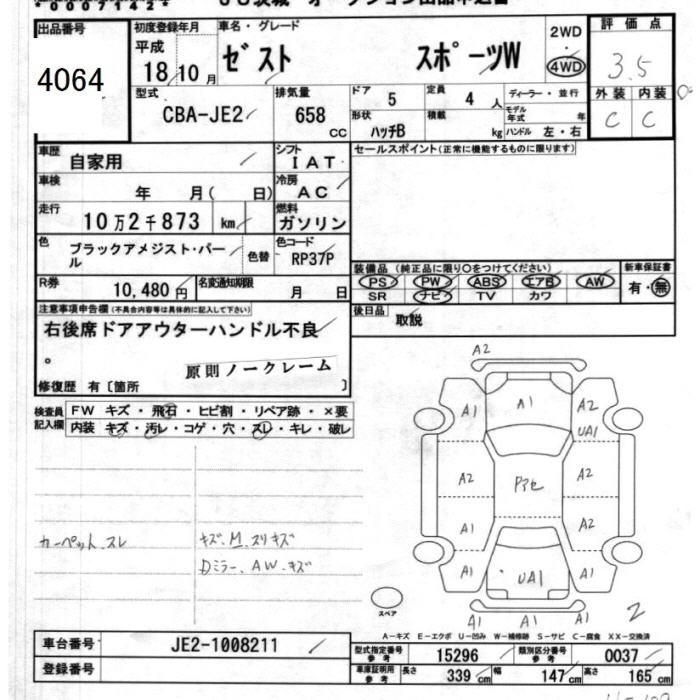 00071424
出品番号
4064
初度登録年月
平成
18 10 月
車名・グレード
ゼスト スポーツW
2WD
・
4WD
評価点
3.5
外装 内装
C C
型式
CBA-JE2
排気量
658
cc
ドア
5
定員
4 人
ディーラー・並行
形状
ハッチB
積載
kg
モデル
年式 年
ハンドル 左・右
車歴
自家用
シフト
IAT
セールスポイント(正常に機能するものに限ります)
車検
年 月( 日)
冷房
AC
走行
10万2千873 km
燃料
ガソリン
色
ブラックアメジスト・パー
ル
色替
色コード
RP37P
装備品 (純正品に限り○をつけてください)
PS PW ABS エアB AW
SR ナビ TV カワ
新車保証書
有・無
R券
10,480 円
名変通知期限
月 日
後日品
取説
注意事項申告欄(不具合内容等は具体的に記入して下さい)
右後席ドアアウターハンドル不良
。
原則ノークレーム
修復歴 有〔箇所 〕
検査員
記入欄
FW キズ・飛石・ヒビ割・リペア跡・×要
内装 キズ・汚レ・コゲ・穴・スレ・キレ・破レ
カーペット スレ
キズ、M、スリキズ
Dミラー、AW、キズ
A2
A1 A1 A2
UA1
A2 Pアセ A2
A1 A2
A1 UA1 A1
A1 A1 A1
2
スペア
A-キズ E-エクボ U-凹み W-補修跡 S-サビ C-腐食 XX-交換済
車台番号
JE2-1008211
登録番号
型式指定番号
参考
15296
類別区分番号
参考
0037
車庫証明用
参考
長さ
339 cm
幅
147 cm
高さ
165 cm